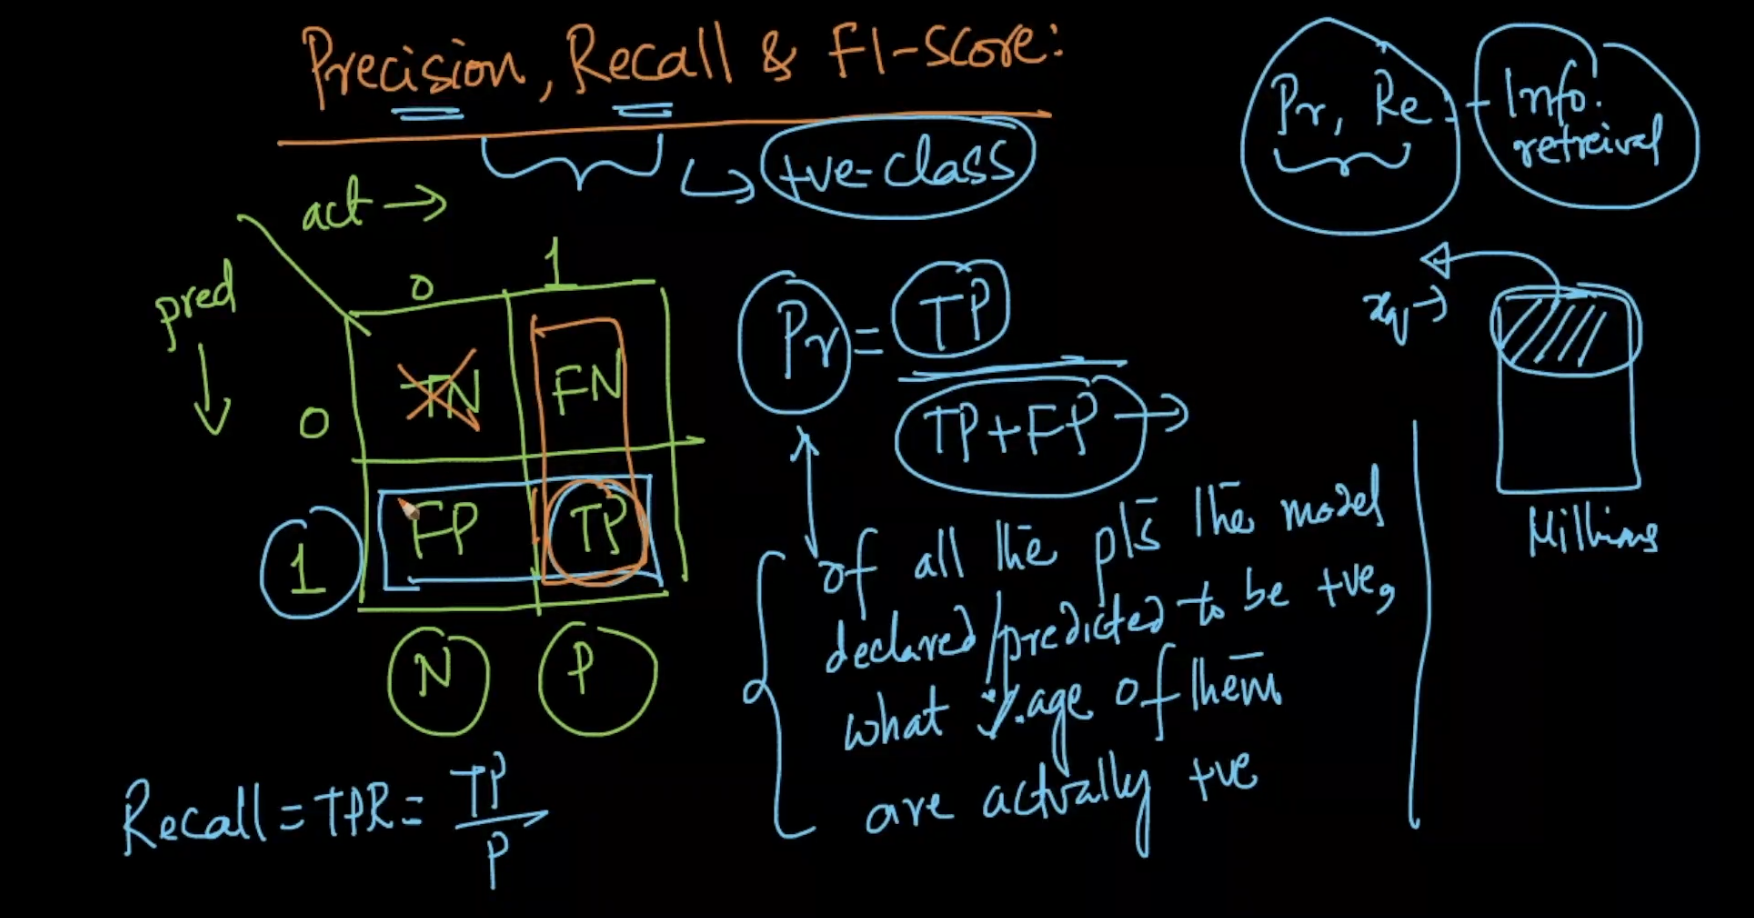 Precision, Recall & F1-Score:
+ve-class
Pr, Re - Info.
retreival
act →
pred
0 1
0 TN FN
1 FP TP
N P
Pr = TP
TP+FP →
xq →
Millions
of all the pts the model
declared/predicted to be +ve,
what %age of them
are actually +ve
Recall = TPR = TP
P